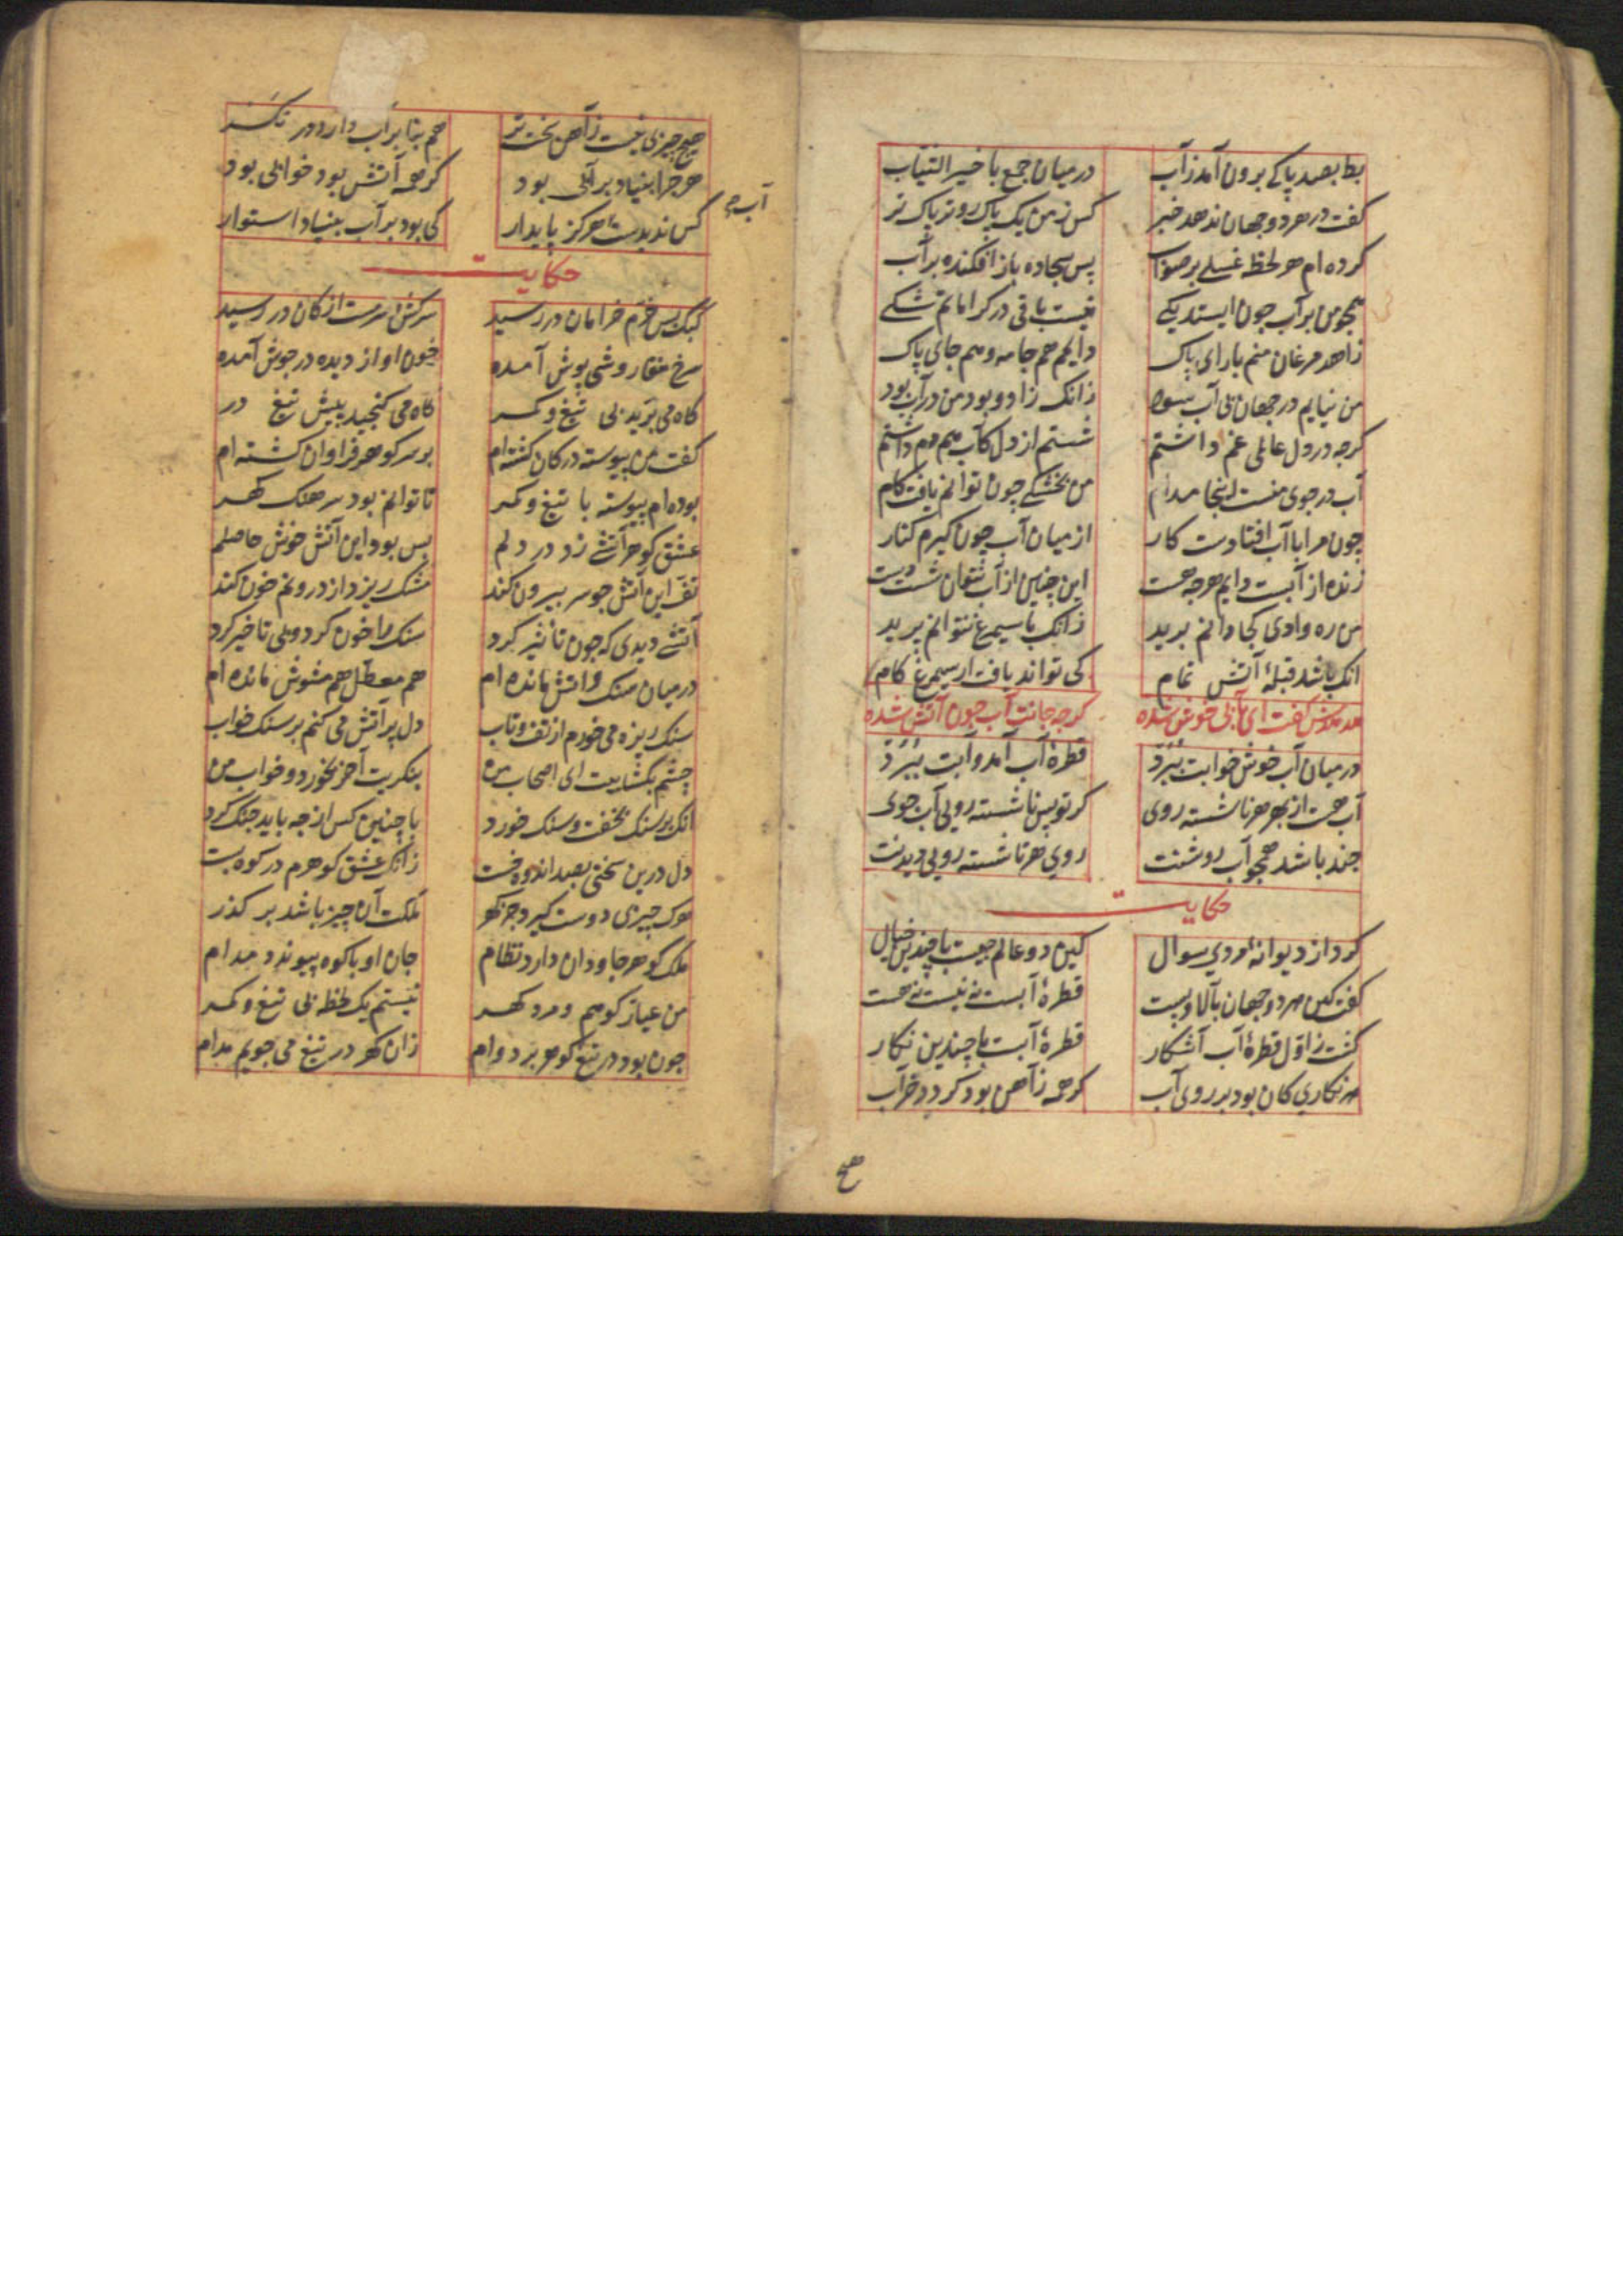 بط بصد پاکی برون آمد ز آب در میان جمع با خیر الثیاب
کفت در هر دو جهان ندهد خبر کس ز من یک پاک رو تر پاک تر
کرده ام هر لحظه غسلی بر صواب پس سجاده باز افکنده بر آب
همچو من بر آب چون ایستد یکی نیست باقی در کراماتم شکی
زاهد مرغان منم با رای پاک دایم هم جامه و هم جای پاک
من نیابم در جهان بی آب سود زانک زاد و بود من در آب بود
کرچه در دل عالمی غم داشتم شستم از دل کآب هم دم داشتم
آب در جوی منست اینجا مدام من بخشکی چون توانم یافت کام
چون مرا با آب افتادست کار از میان آب چون کیرم کنار
زنده از آبست دایم هرچه هست این چنین از آب نتوان شست دست
من ره وادی کجا دانم برید زانک با سیمرغ نتوانم پرید
انک باشد قبلهٔ آتش تمام کی تواند یافت از سیمرغ کام
هدهدش کفت ای بآبی خوش شده کرد جانت آب چون آتش شده
در میان آب خوش خوابت ببرد قطرهٔ آب آمد و آبت ببرد
آب هست از بهر هر ناشسته روی کر تو بس ناشسته رویی آب جوی
چند باشد همچو آب روشنت روی هر ناشسته رویی دیدنت
حکایت
کرد از دیوانهٔ مردی سوال کین دو عالم چیست با چندین خیال
کفت کین هر دو جهان بالا و پست قطرهٔ آبست نه نیست نه هست
کشت ز اول قطرهٔ آب آشکار قطرهٔ آبست با چندین نکار
هر نکاری کان بود بر روی آب کرچه ز آهن بود کردد خراب
هیچ
آب
هیچ چیزی نیست ز آهن سخت تر هم بنا بر آب دارد در نکر
هرچرا بنیاد بر آبی بود کر همه آتش بود خوابی بود
کس ندیدست هرکز پایدار کی بود بر آب بنیاد استوار
حکایت
کبک بس خرم خرامان در رسید سرکش و سرمست از کان در رسید
سرخ منقار وشی پوش آمده خون او از دیده در جوش آمده
کاه می برید بی تیغ و کمر کاه می کنجید پیش تیغ در
کفت من پیوسته در کان کشته ام بر سر کوهر فراوان کشته ام
بوده ام پیوسته با تیغ و کمر تا توانم بود سرهنک کهر
عشق کوهر آتشی زد در دلم بس بود این آتش خوش حاصلم
تف این آتش چو سر بیرون کند سنک ریزه از درونم خون کند
آتشی دیدی که چون تأثیر کرد سنک را خون کرد و بی تاخیر کرد
در میان سنک و آتش مانده ام هم معطل هم مشوش مانده ام
سنک ریزه می خورم از تف و تاب دل پر آتش می کنم بر سنک خواب
چشم بکشاییت ای اصحاب من بنکریت آخر بخورد و خواب من
انک بر سنک بخفت و سنک خورد با چنین کس از چه باید جنک کرد
دل درین سختی بصد اندوه خست زانک عشق کوهرم در کوه بست
هرک چیزی دوست کیرد جز کهر ملکت آن چیز باشد بر کذر
ملک کوهر جاودان دارد نظام جان او با کوه پیوندد مدام
من عیار کوهم و مرد کهر نیستم یک لحظه بی تیغ و کمر
چون بود در تیغ کوهر بر دوام زان کهر در تیغ می جویم مدام